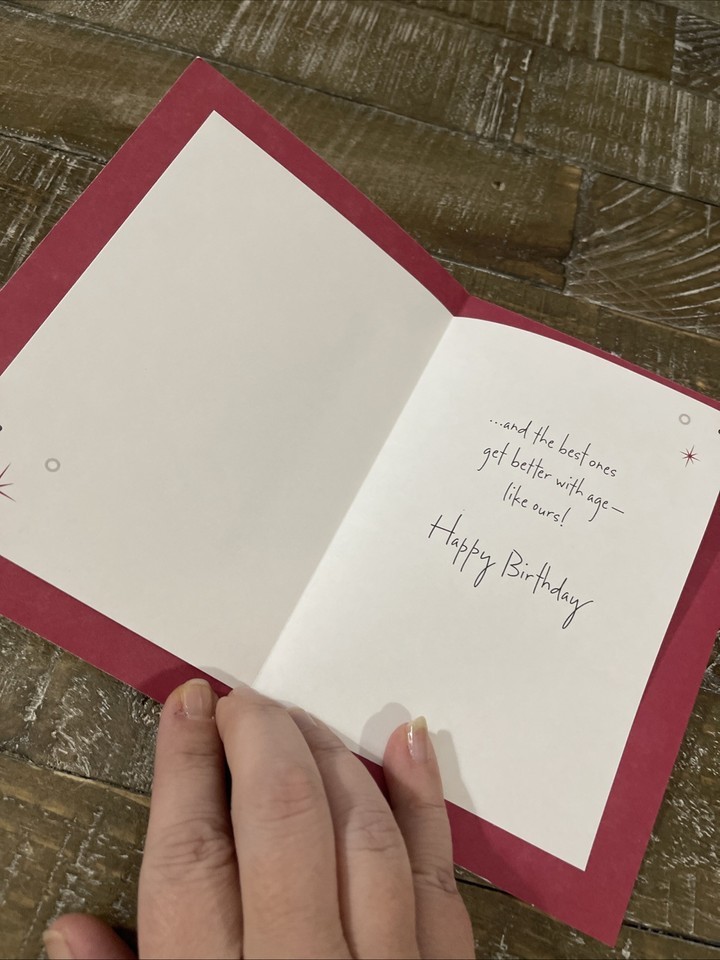 ...and the best ones
get better with age—
like ours!
Happy Birthday